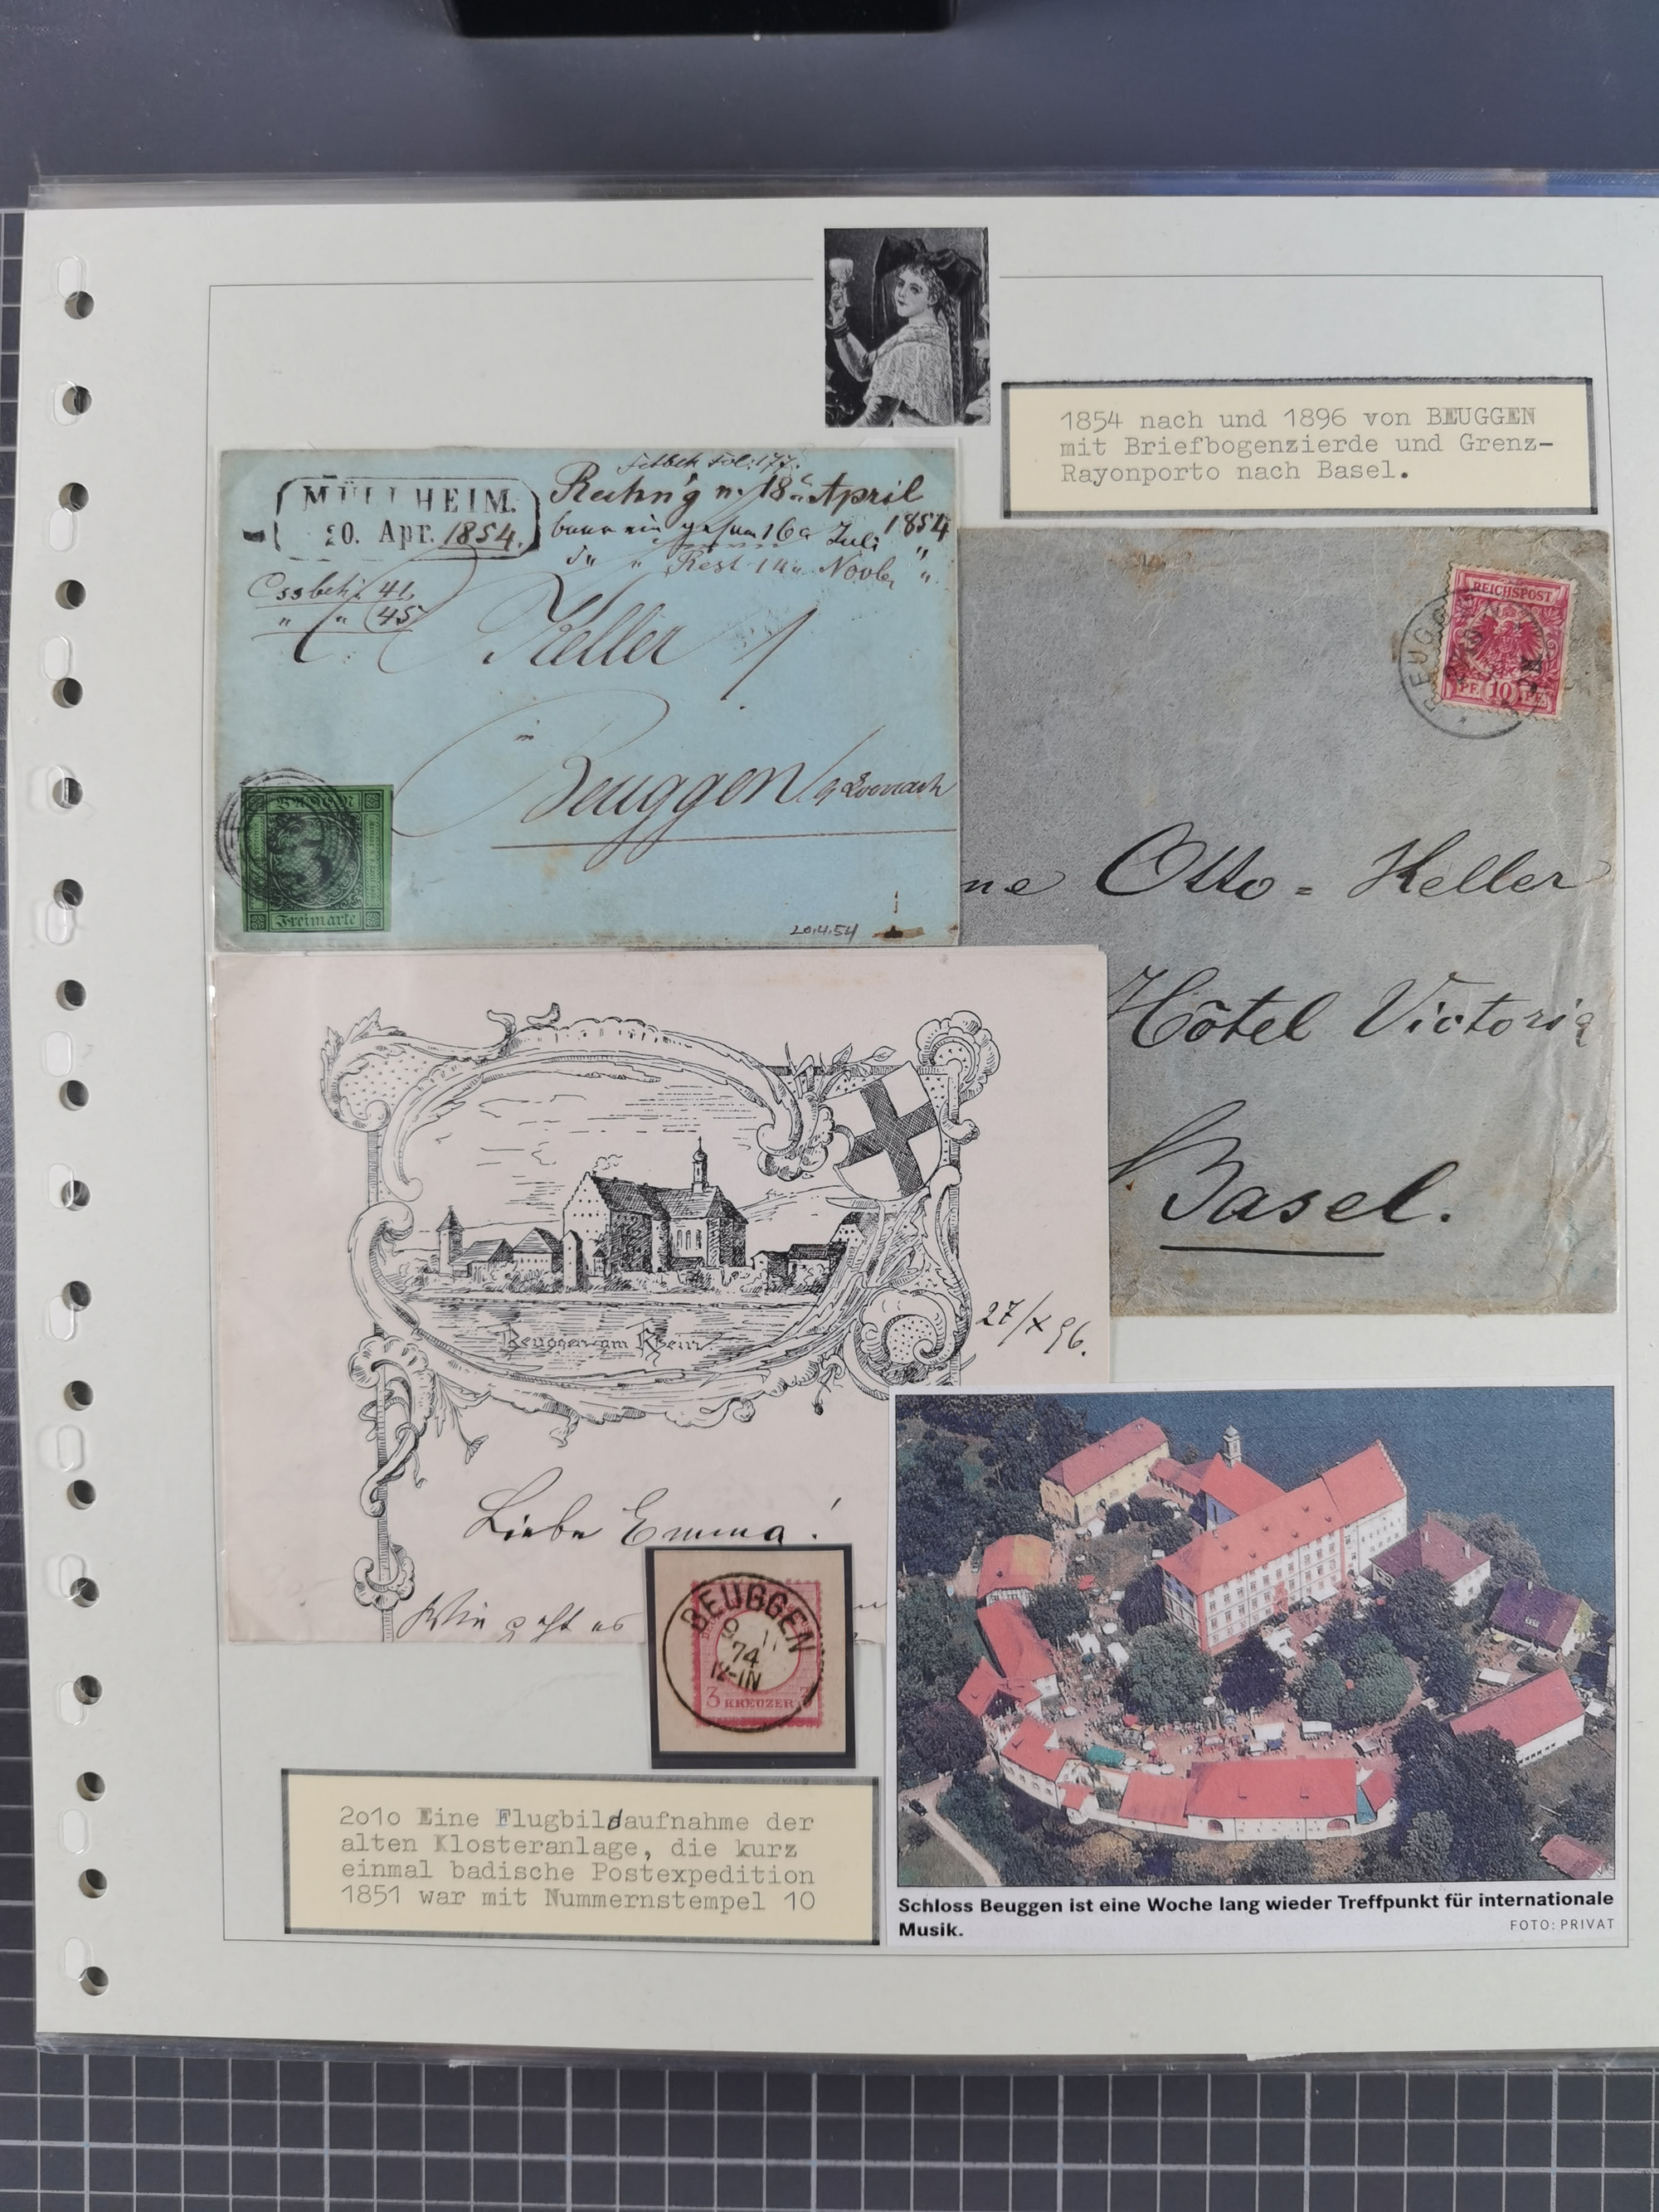 1854 nach und 1896 von BEUGGEN
mit Briefbogenzierde und Grenz-
Rayonporto nach Basel.
MÜLLHEIM.
20. Apr. 1854.
Rechn'g v. 18 April
1854
16 Juli "
" " Rest 14 Novbr "
41
" " 45
C. Keller
in
Beuggen
BADEN
3
Freimarke
20.4.54
REICHSPOST
PF. 10 PF.
BEUGGEN
Otto-Keller
Hôtel Victoria
Basel.
Beuggen am Rhein
27/X 96.
Liebe Emma!
Wie geht es
BEUGGEN
9 11
74
12-1N
3 KREUZER 3
2o1o Eine Flugbildaufnahme der
alten Klosteranlage, die kurz
einmal badische Postexpedition
1851 war mit Nummernstempel 10
Schloss Beuggen ist eine Woche lang wieder Treffpunkt für internationale
Musik.
FOTO: PRIVAT